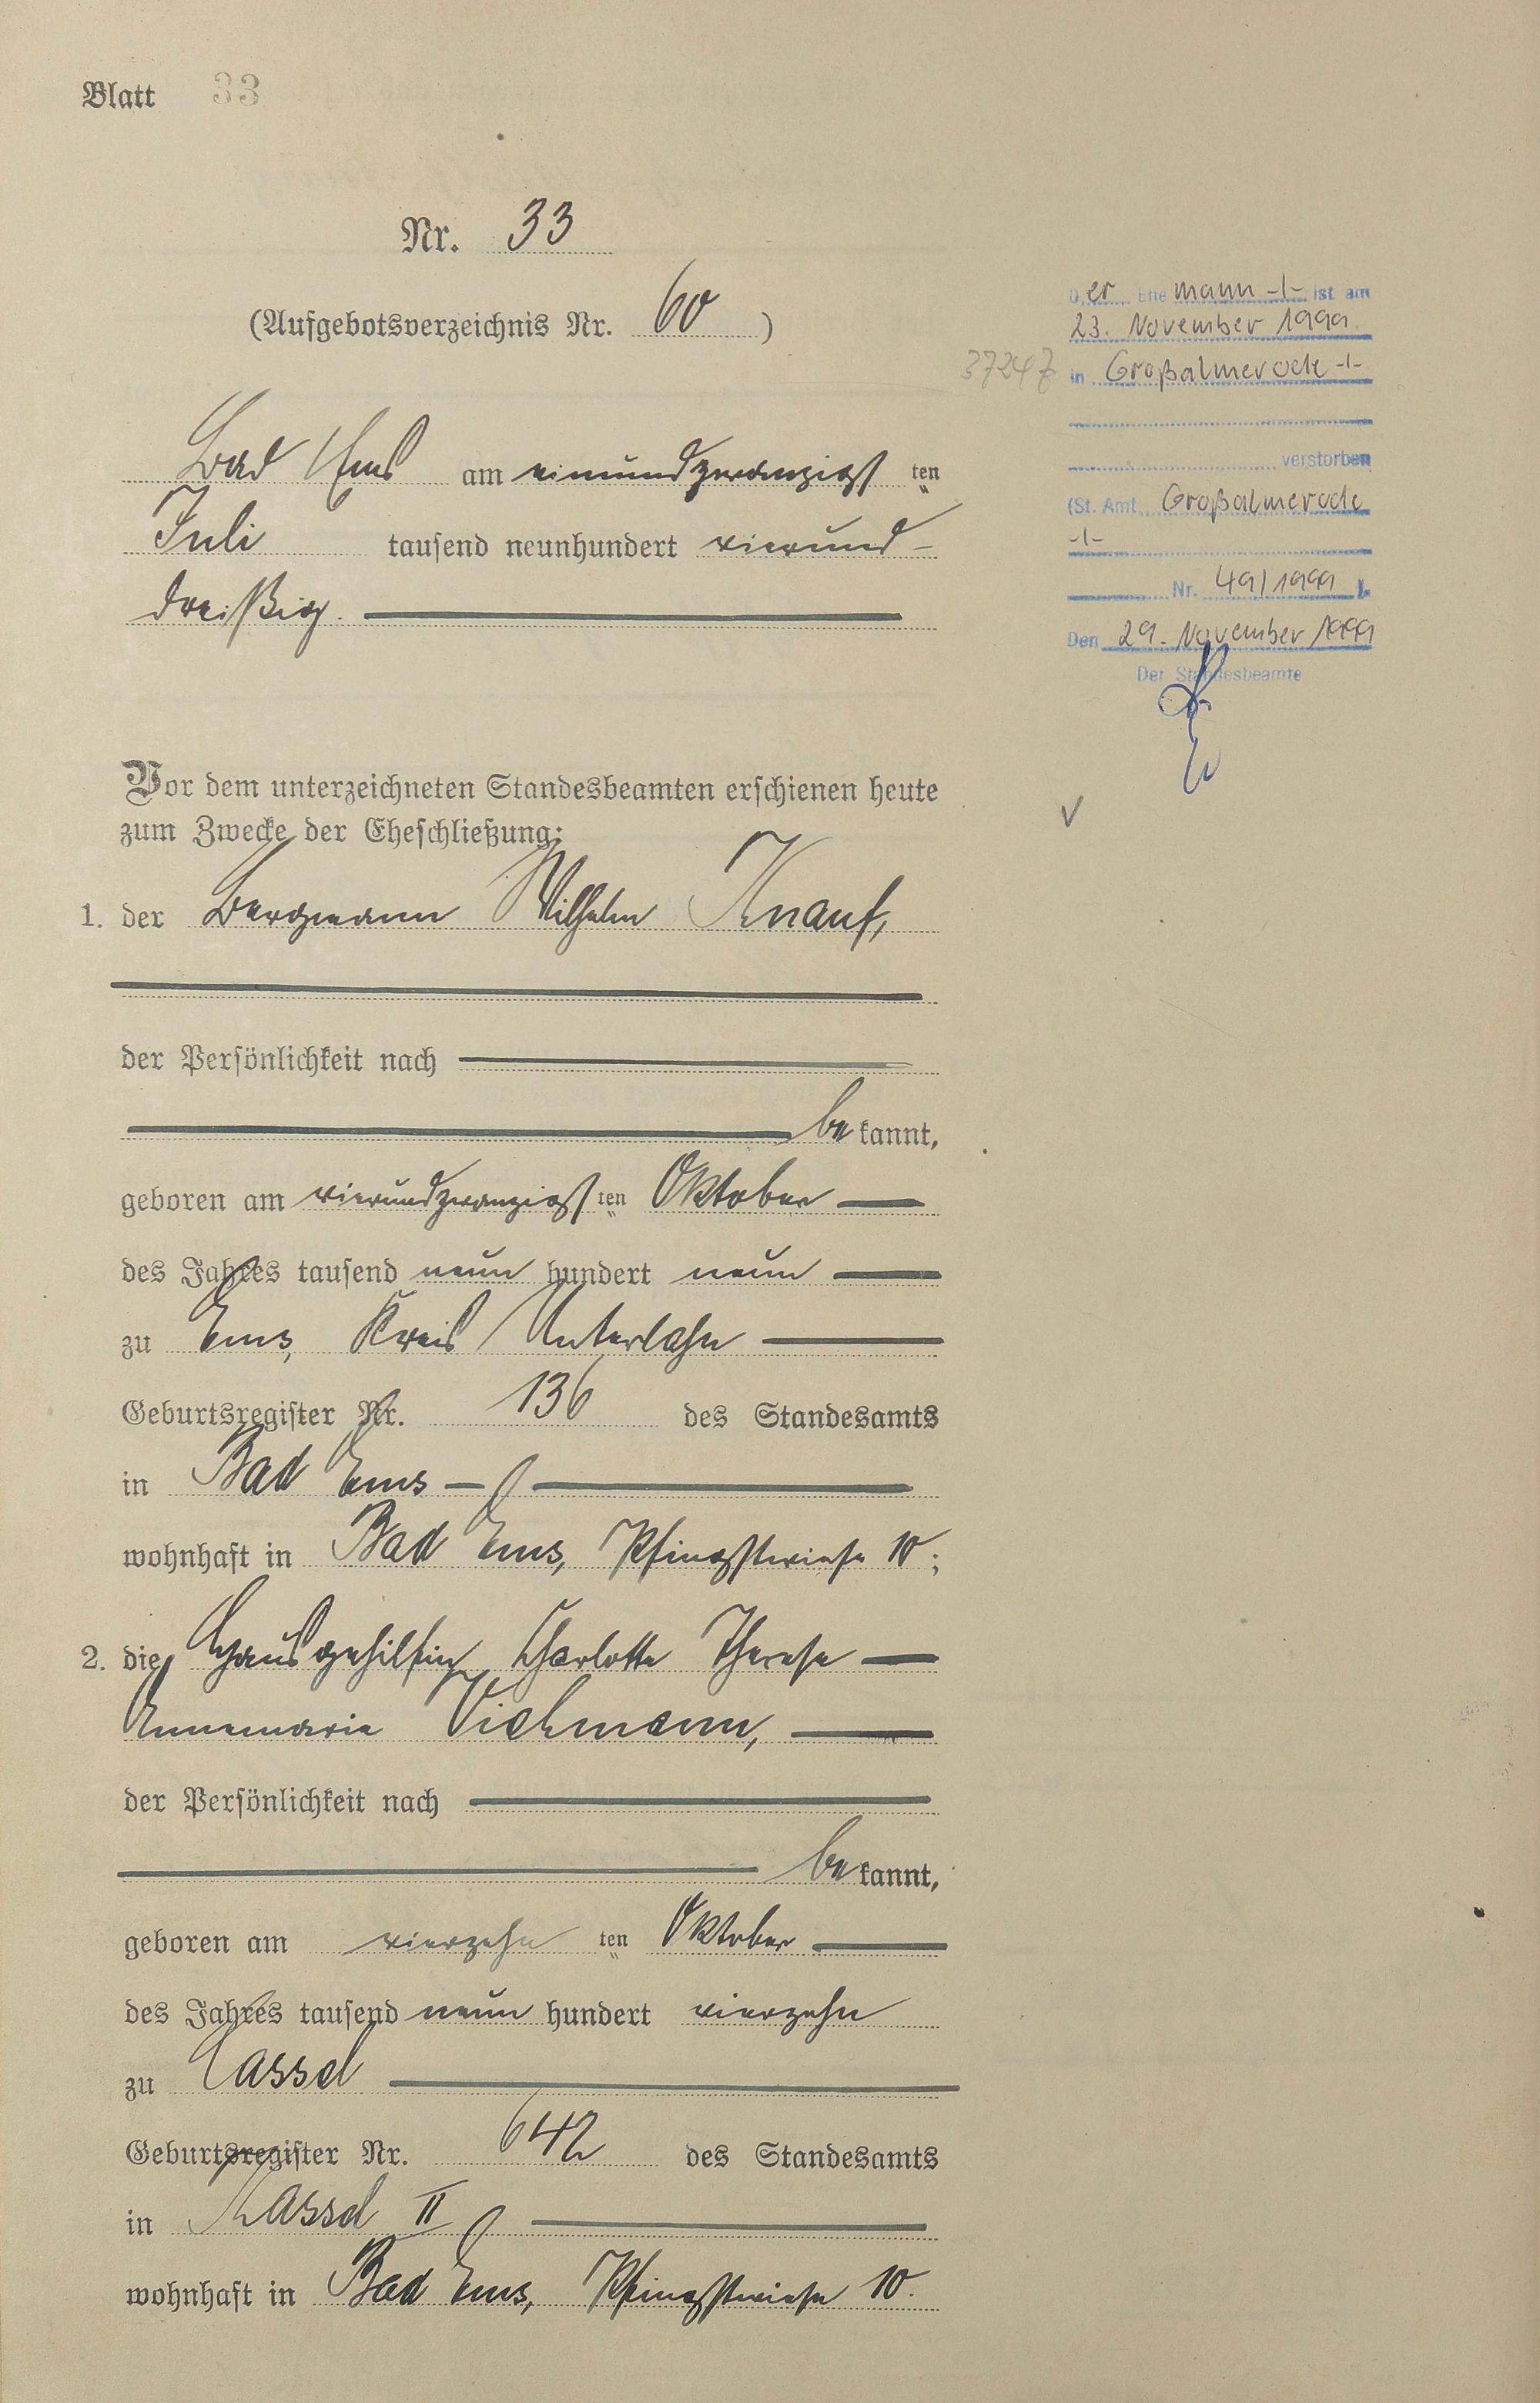 Blatt 33
Nr. 33
(Aufgebotsverzeichnis Nr. 60)
Bad Ems am einundzwanzigst ten
Juli tausend neunhundert vierund-
dreißig.
Vor dem unterzeichneten Standesbeamten erschienen heute
zum Zwecke der Eheschließung:
1. der Bergmann Wilhelm Knauf,
der Persönlichkeit nach
be kannt,
geboren am vierundzwanzigst ten Oktober
des Jahres tausend neun hundert neun
zu Ems, Kreis Unterlahn
Geburtsregister Nr. 136 des Standesamts
in Bad Ems
wohnhaft in Bad Ems, Pfingstwiese 10;
2. die Hausgehilfin Charlotte Therese
Annemarie Viehmann,
der Persönlichkeit nach
be kannt,
geboren am vierzehn ten Oktober
des Jahres tausend neun hundert vierzehn
zu Cassel
Geburtsregister Nr. 642 des Standesamts
in Kassel II
wohnhaft in Bad Ems, Pfingstwiese 10.
Der Ehe mann -/- ist am
23. November 1999
37247
in Großalmerode -/-
verstorben
(St. Amt Großalmerode
-/-
Nr. 49/1999 ).
Den 29. November 1999
Der Standesbeamte